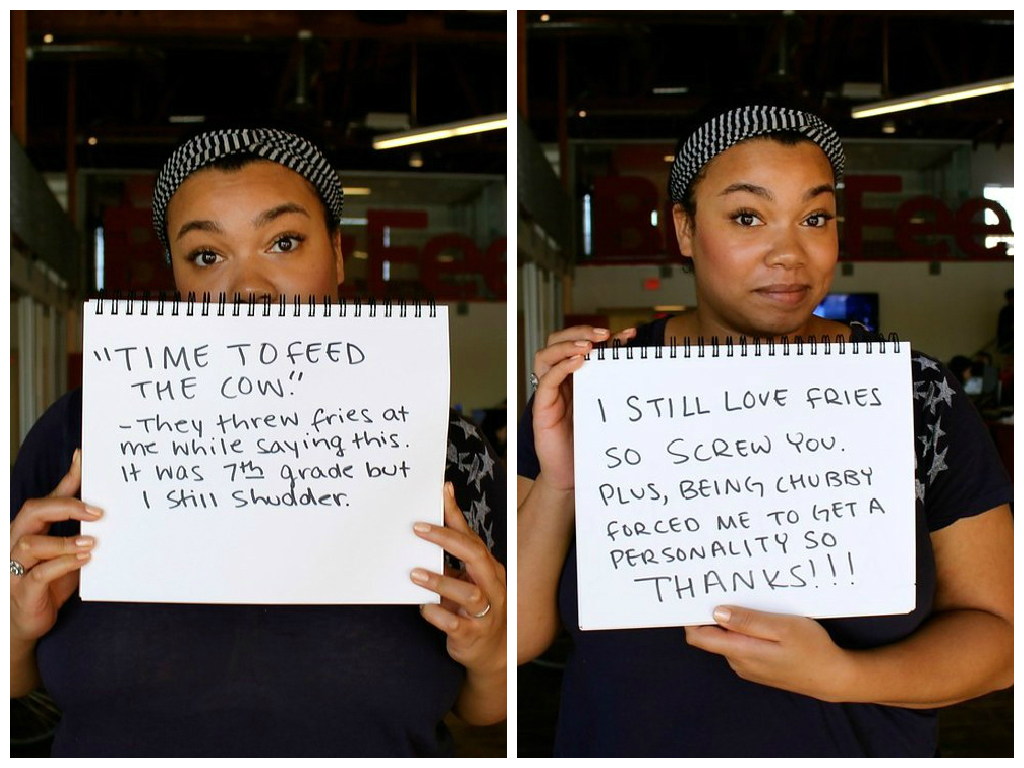 "TIME TO FEED
THE COW."
- They threw fries at
me while saying this.
It was 7th grade but
I still shudder.
I STILL LOVE FRIES
SO SCREW YOU.
PLUS, BEING CHUBBY
FORCED ME TO GET A
PERSONALITY SO
THANKS!!!